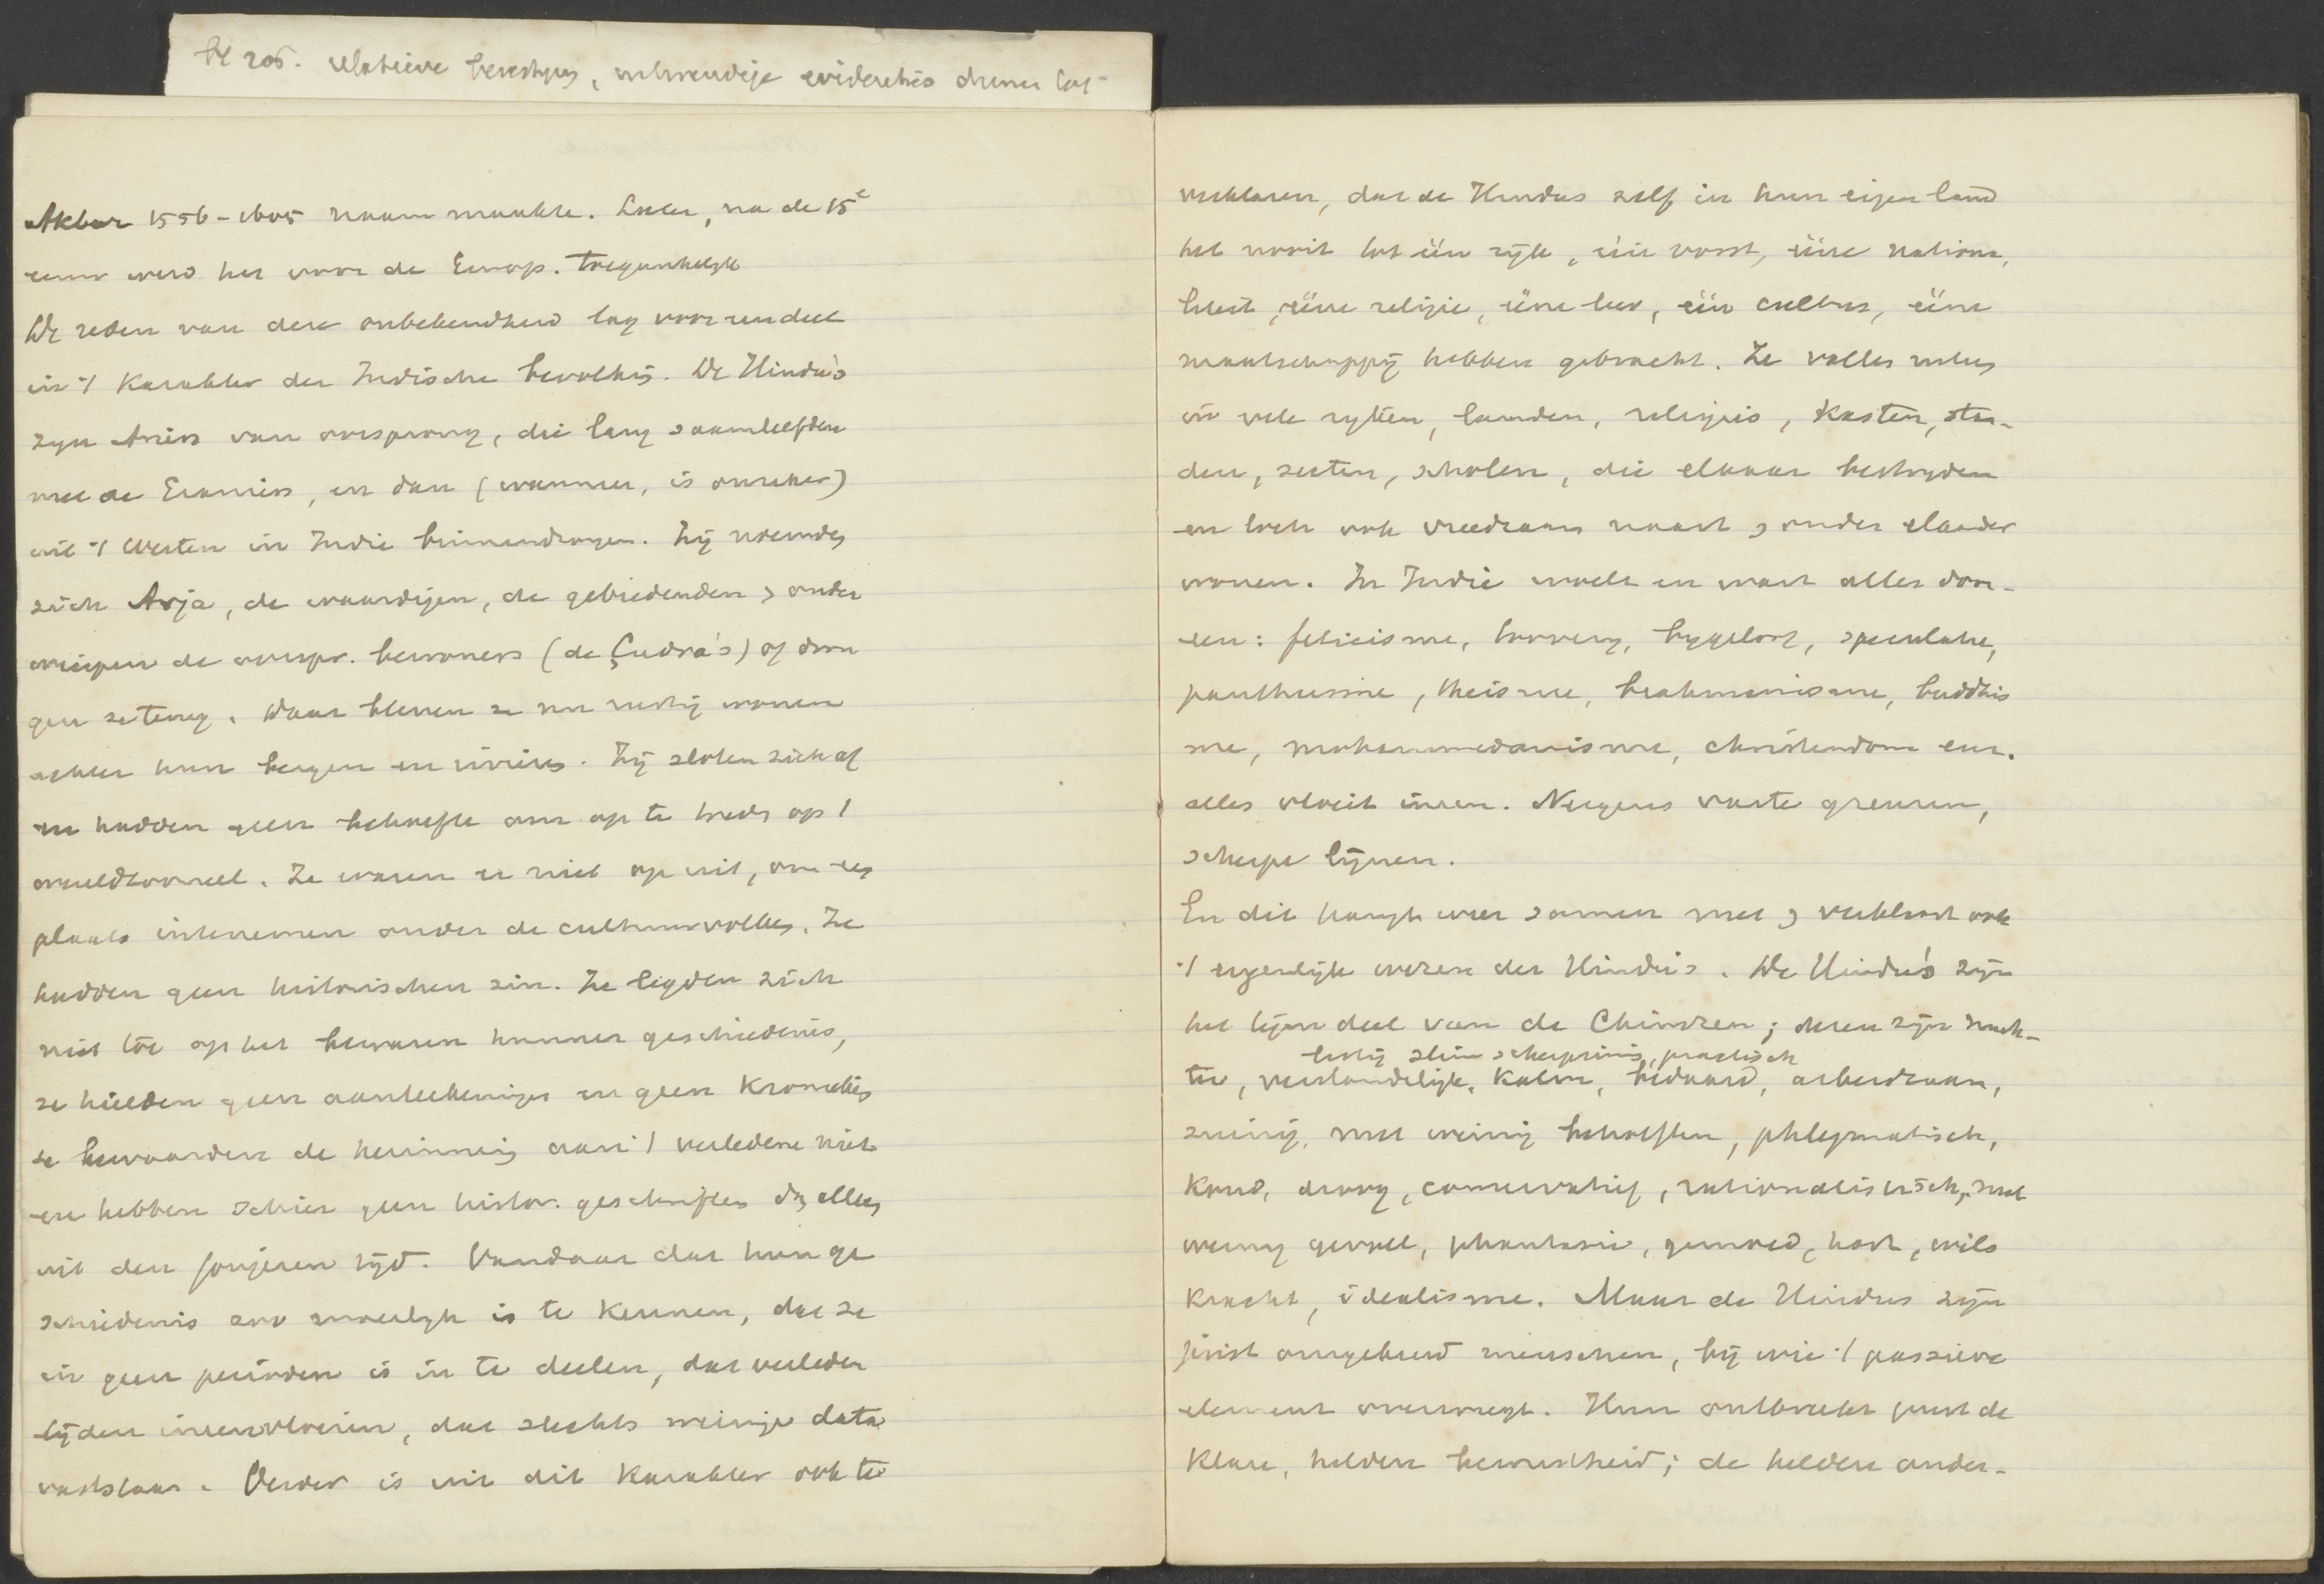 bl 205. relatieve
Akbar 1556-1605 naam maakte. Later, na de 15e
eeuw werd het voor de Europ. toegankelijk
De reden van deze onbekendheid lag voor een deel
in 't karakter der Indische bevolking. De Hindu's
zyn Ariers van oorsprong, die lang saamleefden
met de Eraniers, en dan (wanneer, is onzeker)
uit 't Westen in Indie binnendrongen. Zij noemden
zich Arja, de waardigen, de gebiedenden & onder
wierpen de oorspr. bewoners (de Çudra's) of dron
gen ze terug. Daar bleven ze nu rustig wonen
achter hun bergen en rivieren. Zij sloten zich af
en hadden geen behoefte om op te treden op 't
wereldtooneel. Ze waren er niet op uit, om een
plaats intenemen onder de cultuurvolken. Ze
hadden geen historischen zin. Ze legden zich
niet toe op het bewaren hunner geschiedenis,
ze hielden geen aanteekeningen en geen kronieken
ze bewaarden de herinnering aan 't verledene niet
en hebben schier geen histor. geschriften dan alleen
uit den jongeren tijd. Vandaar dat hun ge
schiedenis zoo moeilyk is te kennen, dat ze
in geen perioden is in te deelen, dat verleden
tijden ineenvloeien, dat slechts weinige data
vaststaan. Verder is uit dit karakter ook te
verklaren, dat de Hindus zelf in hun eigen land
het nooit tot één ryk, één vorst, ééne nationa,
liteit, ééne religie, ééne leer, één cultus, ééne
maatschappij hebben gebracht. Ze vallen uiteen
in vele ryken, landen, religies, kasten, ste-
den, secten, scholen, die elkaar bestryden
en toch ook vreedzaam naast & onder elkander
wonen. In Indie woelt en wart alles door-
een: feticisme, toovery, bygeloof, speculatie,
pantheisme, theisme, brahmanisme, buddhis
me, mohammedanisme, christendom enz.
alles vloeit ineen. Nergens vaste grenzen,
scherpe lijnen.
En dit hangt weer samen met & verklaart ook
't eigenlijk wezen der Hindu's. De Hindu's zijn
het tegendeel van de Chineezen; dezen zijn nuch-
listig slim scherpzinnig, practisch
ter, verstandelijk, kalm, bedaard, arbeidzaam,
zuinig, met weinig behoeften, phlegmatisch,
koud, droog, conservatief, rationalistisch, met
weinig gevoel, phantasie, gemoed, hart, wils
kracht, idealisme. Maar de Hindus zijn
juist omgekeerd menschen, bij wie 't passieve
element overweegt. Hun ontbreekt juist de
klare, heldere bewustheid; de heldere onder-